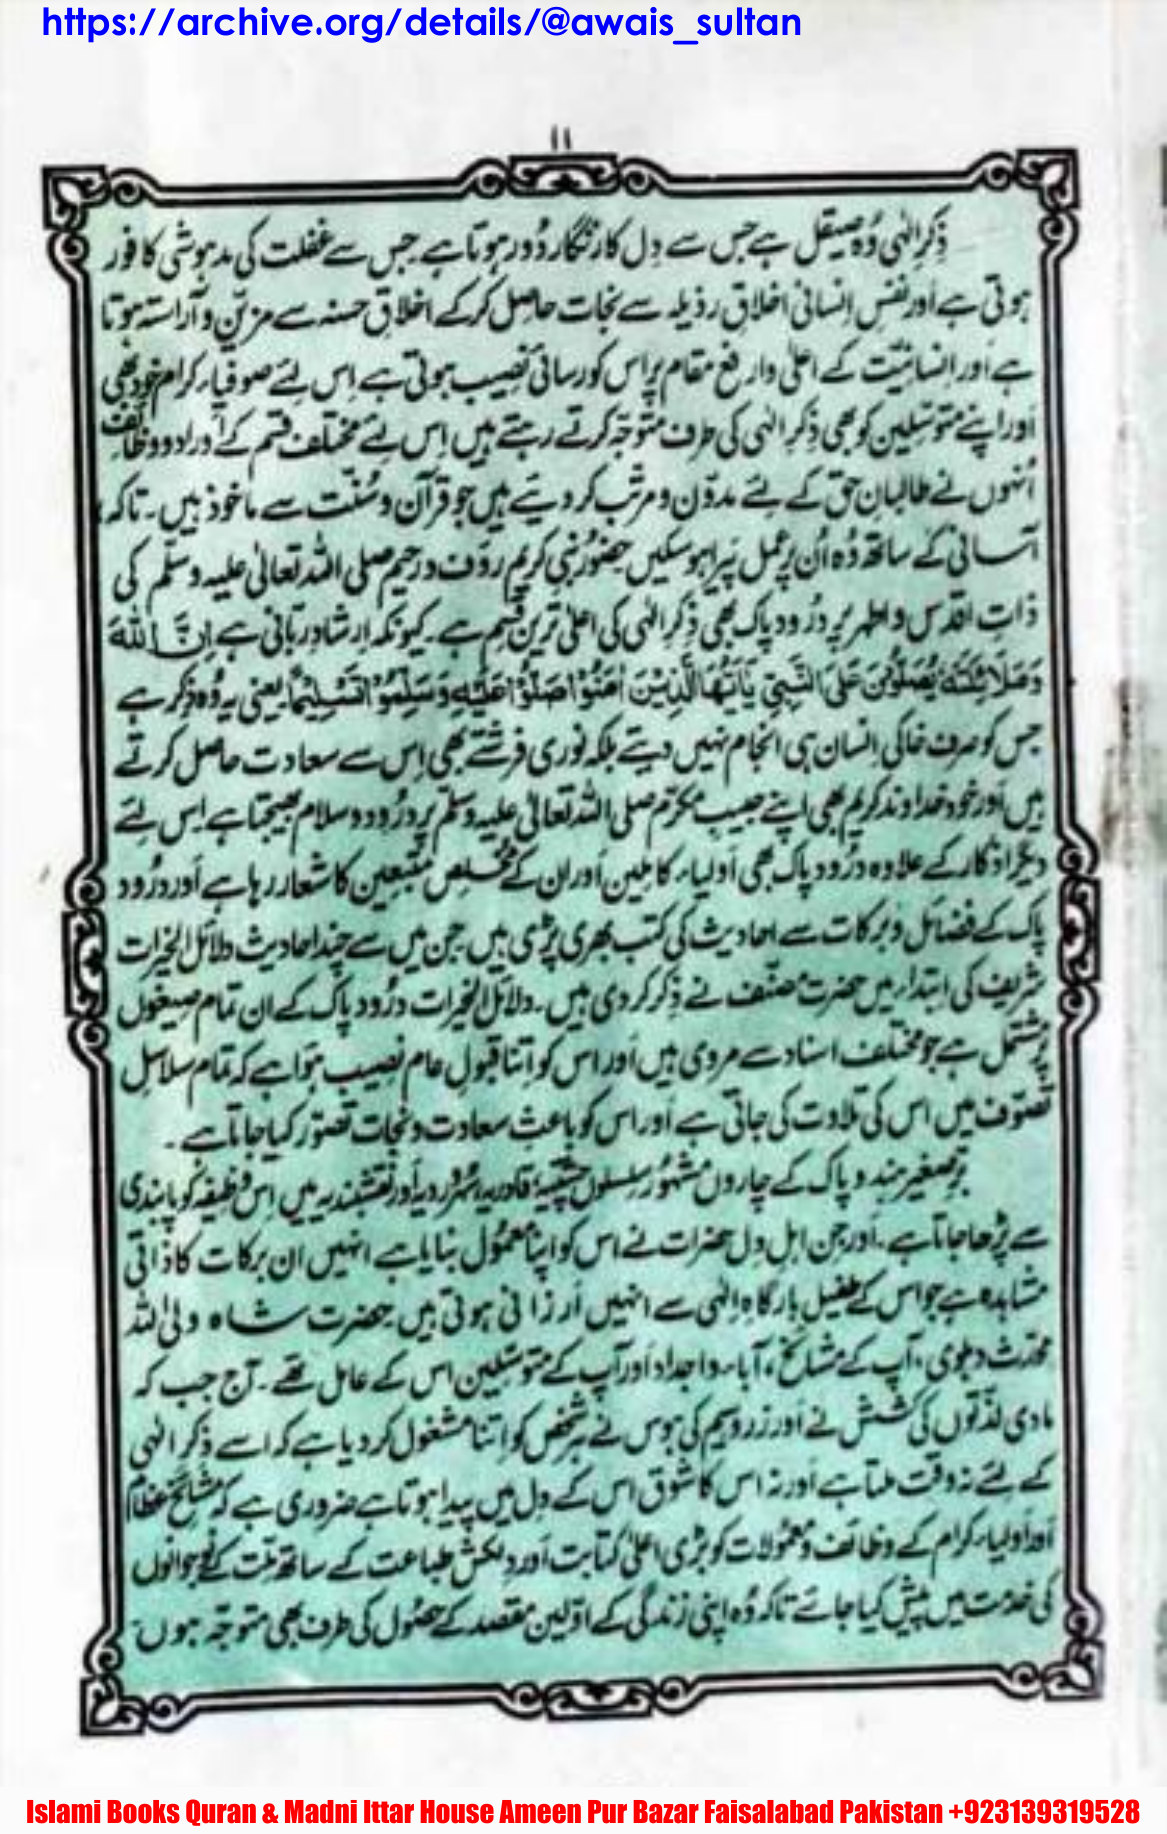 https://archive.org/details/@awais_sultan
۱۱
ذِکرِ الٰہی وُہ صیقل ہے جس سے دِل کا زنگار دُور ہوتا ہے جس سے غفلت کی مدہوشی کافور
ہوتی ہے اَور نفسِ اِنسانی اخلاقِ رذیلہ سے نجات حاصِل کر کے اخلاقِ حسنہ سے مزیّن و آراستہ ہوتا
ہے اَور اِنسانیّت کے اعلیٰ و ارفع مقام پر اس کو رسائی نصیب ہوتی ہے اِس لئے صوفیاء کرام خود بھی
اَور اپنے متوسّلین کو بھی ذِکرِ الٰہی کی طرف متوجّہ کرتے رہتے ہیں اِس لئے مختلف قِسم کے اَوراد و وظائف
اُنہوں نے طالبانِ حق کے لئے مدوّن و مرتّب کر دیئے ہیں جو قرآن و سُنّت سے ماخوذ ہیں۔ تاکہ
آسانی کے ساتھ وُہ اُن پر عمل پَیرا ہو سکیں حضور نبی کریم رؤف و رحیم صلی اللہ تعالیٰ علیہ وسلّم کی
ذاتِ اقدس و اطہر پر دُرود پاک بھی ذِکرِ الٰہی کی اعلیٰ ترین قِسم ہے۔ کیونکہ ارشادِ ربّانی ہے اِنَّ اللّٰهَ
وَمَلَائِكَتَهٗ يُصَلُّوْنَ عَلَى النَّبِيِّ يَآ أَيُّهَا الَّذِيْنَ اٰمَنُوْا صَلُّوْا عَلَيْهِ وَسَلِّمُوْا تَسْلِيْمًا یعنی یہ وُہ ذِکر ہے
جس کو صرف خاکی اِنسان ہی انجام نہیں دیتے بلکہ نوری فرشتے بھی اِس سے سعادت حاصل کرتے
ہیں اَور خود خداوند کریم بھی اپنے حبیبِ مکرّم صلی اللہ تعالیٰ علیہ وسلّم پر دُرود و سلام بھیجتا ہے اِس لئے
دیگر اذکار کے علاوہ درُود پاک بھی اَولیاء کاملین اَور ان کے مُخلِص متّبعین کا شعار رہا ہے اَور درُود
پاک کے فضائل و برکات سے احادیث کی کتب بھری پڑی ہیں جن میں سے چند احادیث دلائل الخیرات
شریف کی ابتداء میں حضرت مصنّف نے ذِکر کر دی ہیں۔ دلائل الخیرات درُود پاک کے ان تمام صیغوں
پر مشتمل ہے جو مختلف اسناد سے مروی ہیں اَور اس کو اِتنا قبولِ عام نصیب ہوا ہے کہ تمام سلاسلِ
تصوّف میں اس کی تلاوت کی جاتی ہے اَور اس کو باعثِ سعادت و نجات تصوّر کیا جاتا ہے۔
برّصغیر ہند و پاک کے چاروں مشہُور سِلسلوں چشتیہ، قادریہ، سُہروردیہ اَور نقشبندیہ میں اِس وظیفہ کو پابندی
سے پڑھا جاتا ہے۔ اَور جن اہلِ دِل حضرات نے اس کو اپنا معمُول بنایا ہے انہیں ان برکات کا ذاتی
مشاہدہ ہے جو اس کے طفیل بارگاہِ اِلٰہی سے انہیں اَرزانی ہوتی ہیں حضرت شاہ ولی اللہ
محدّث دہلوی، آپ کے مشائخ، آباء و اجداد اَور آپ کے متوسّلین اس کے عامل تھے۔ آج جب کہ
مادی لذّتوں کی کشش نے اَور زر و سیم کی ہوس نے ہر شخص کو اِتنا مشغول کر دیا ہے کہ اسے ذِکرِ الٰہی
کے لئے نہ وقت ملتا ہے اَور نہ اس کا شوق اس کے دِل میں پیدا ہوتا ہے ضروری ہے کہ مشائخ عظام
اَور اَولیاء کرام کے وظائف و معمُولات کو بڑی اعلیٰ کتابت اَور دِلکش طباعت کے ساتھ مِلّت کے نوجوانوں
کی خدمت میں پیش کیا جائے تاکہ وُہ اپنی زندگی کے اوّلین مقصد کے حصُول کی طرف بھی متوجّہ ہوں
Islami Books Quran & Madni Ittar House Ameen Pur Bazar Faisalabad Pakistan +923139319528